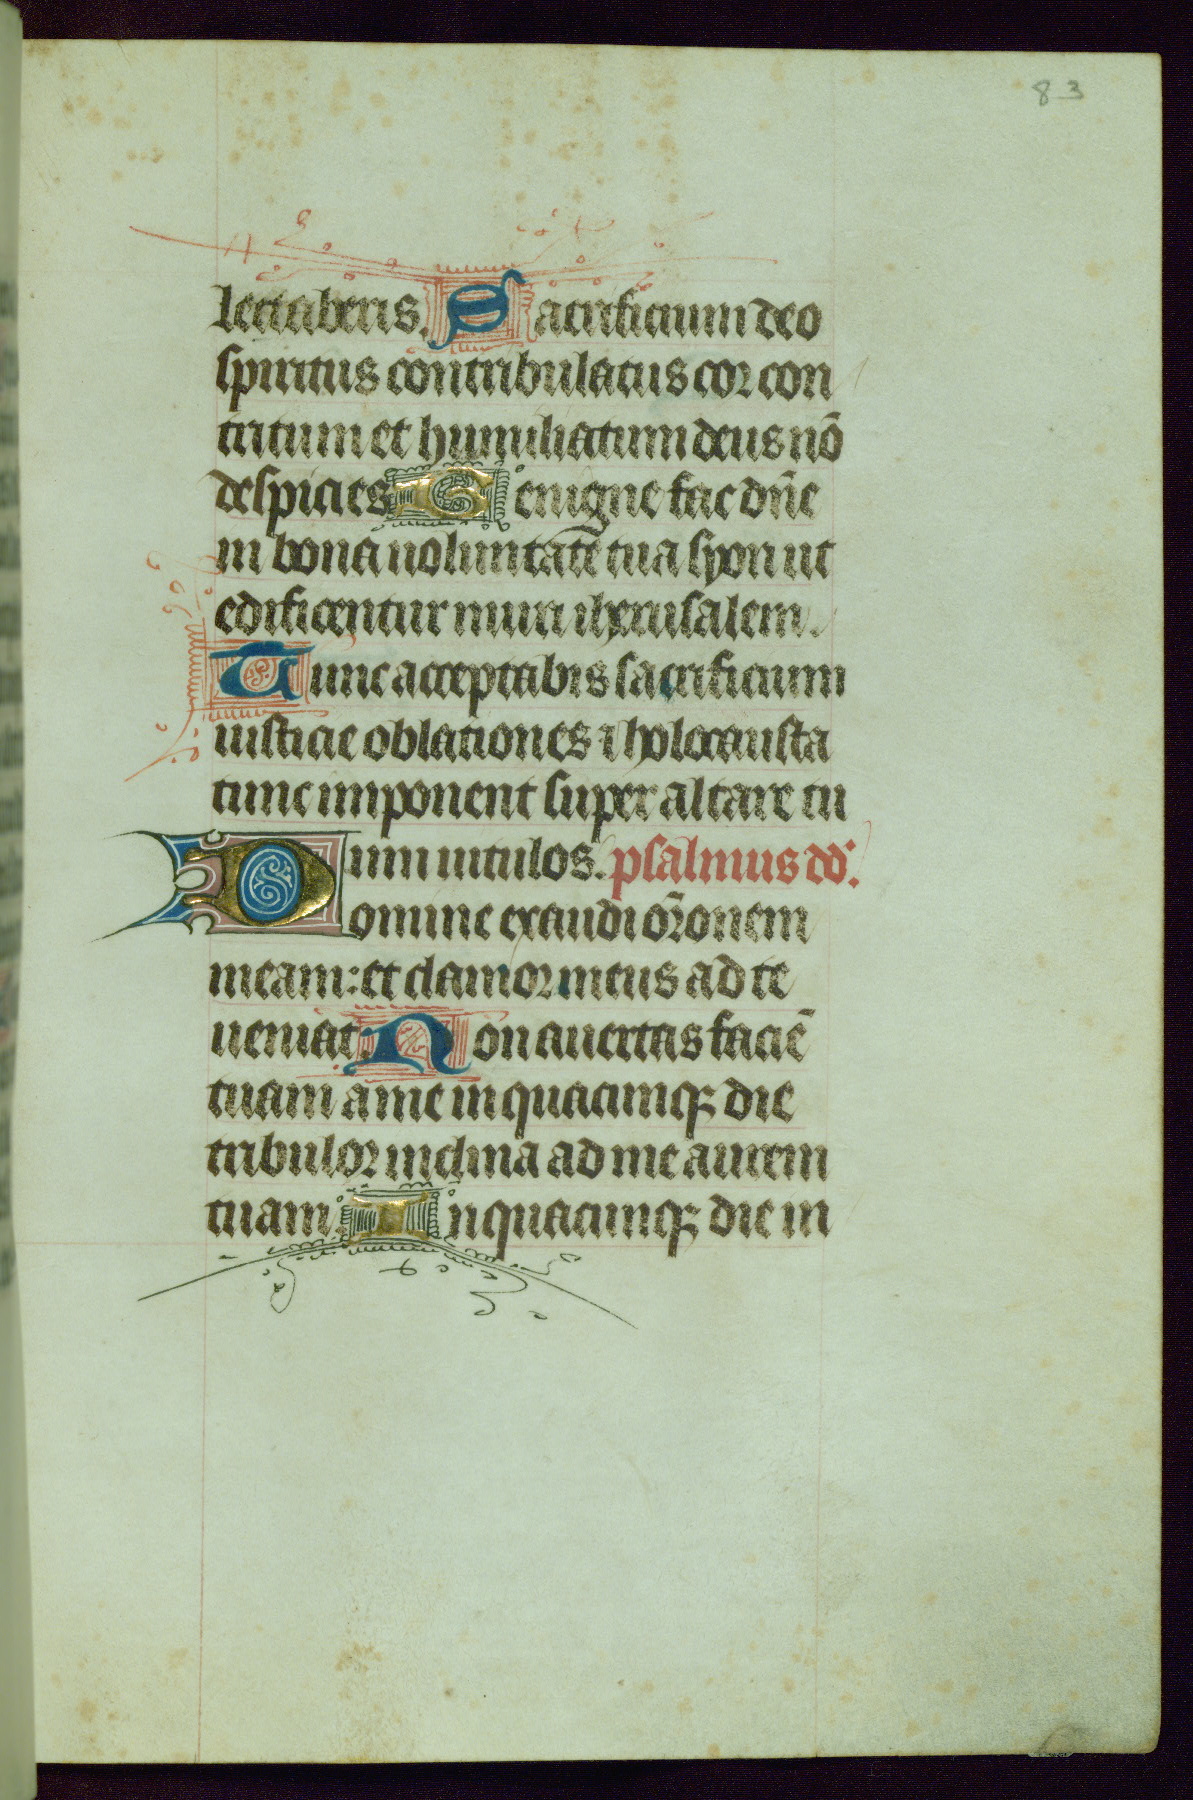 83
lectaberis. Sacrificium deo
spiritus contribulatus cor con
tritum et humiliatum deus nō
despicies Benigne fac dn̄e
in bona uoluntate tua syon ut
edificentur muri iherusalem.
Tunc acceptabis sacrificium
iusticie oblationes ⁊ holocausta
tunc imponent super altare tu
um uitulos. psalmus dd'.
Domine exaudi or̄onem
meam: et clamor meus ad te
ueniat. Non auertas faciē
tuam a me in quacumqꝫ die
tribulor inclina ad me aurem
tuam. Inquacumqꝫ die in